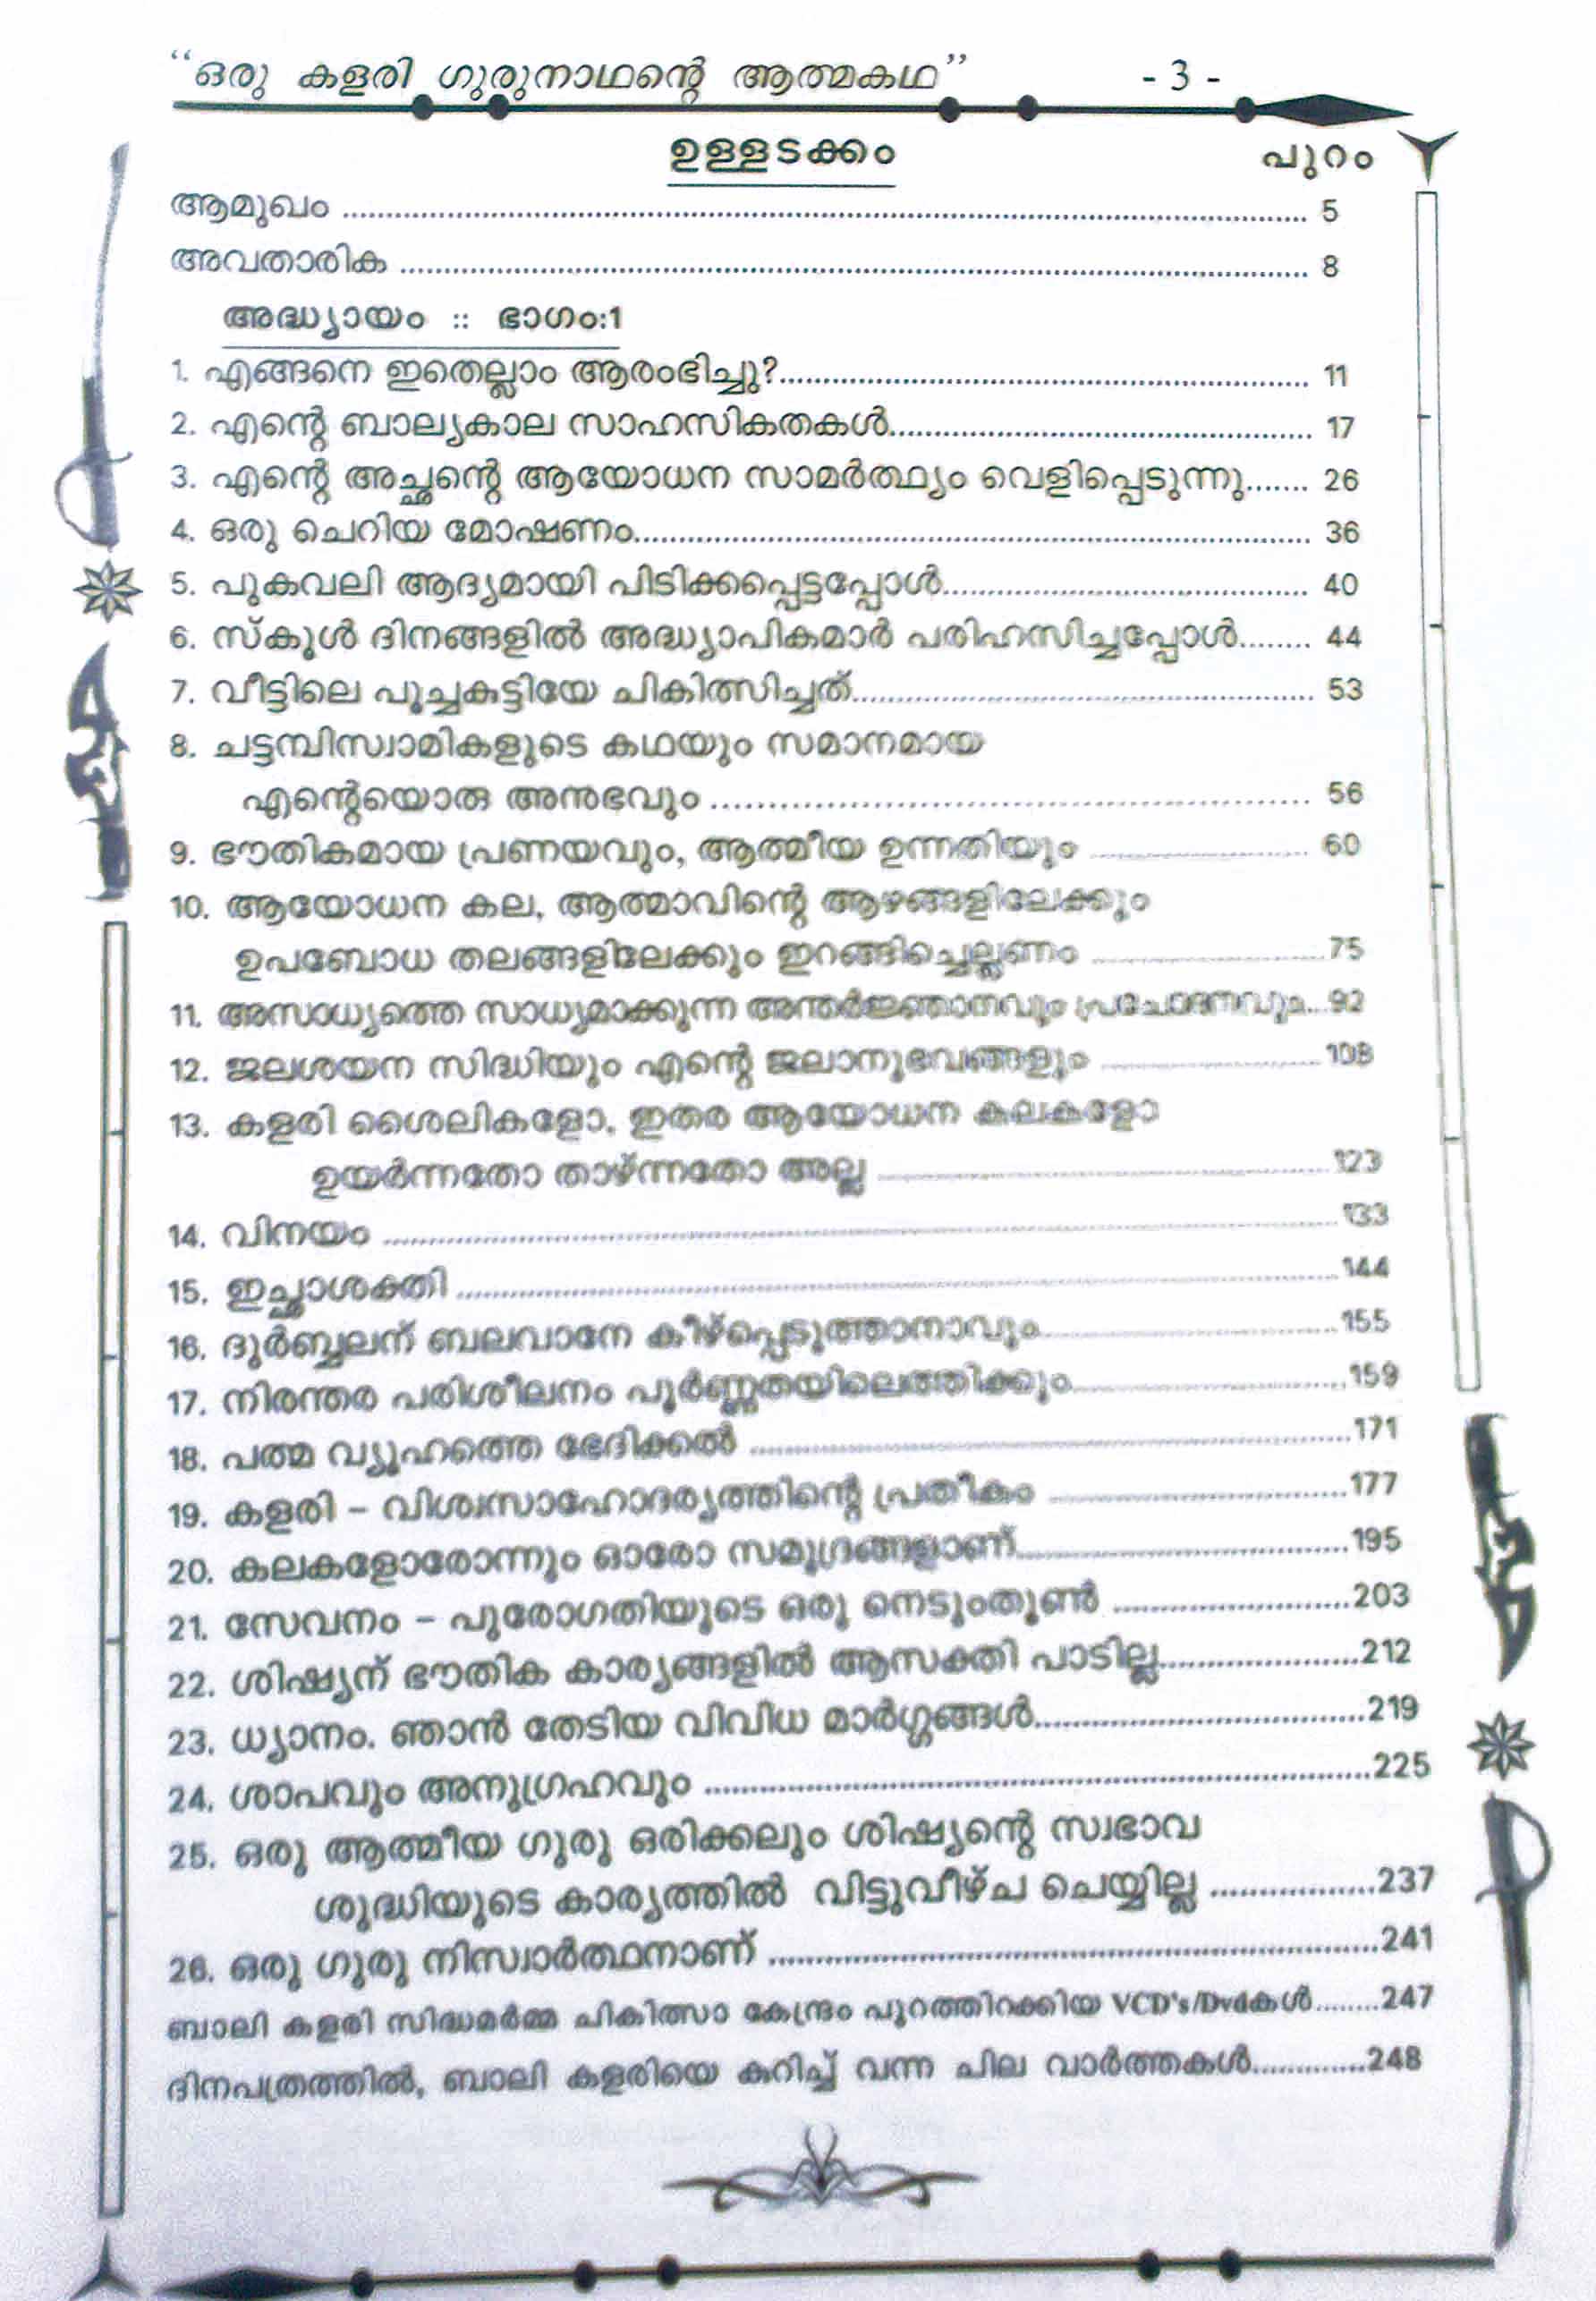 “ഒരു കളരി ഗുരുനാഥന്റെ ആത്മകഥ” - 3 -
ഉള്ളടക്കം പുറം
ആമുഖം ........................................ 5
അവതാരിക ........................................ 8
അദ്ധ്യായം :: ഭാഗം:1
1. എങ്ങനെ ഇതെല്ലാം ആരംഭിച്ചു?........................................ 11
2. എന്റെ ബാല്യകാല സാഹസികതകൾ........................................ 17
3. എന്റെ അച്ഛന്റെ ആയോധന സാമർത്ഥ്യം വെളിപ്പെടുന്നു....... 26
4. ഒരു ചെറിയ മോഷണം........................................ 36
5. പുകവലി ആദ്യമായി പിടിക്കപ്പെട്ടപ്പോൾ........................................ 40
6. സ്കൂൾ ദിനങ്ങളിൽ അദ്ധ്യാപികമാർ പരിഹസിച്ചപ്പോൾ........ 44
7. വീട്ടിലെ പൂച്ചകുട്ടിയേ ചികിത്സിച്ചത്........................................ 53
8. ചട്ടമ്പിസ്വാമികളുടെ കഥയും സമാനമായ
എന്റെയൊരു അനുഭവും ........................................ 56
9. ഭൗതികമായ പ്രണയവും, ആത്മീയ ഉന്നതിയും ........................ 60
10. ആയോധന കല, ആത്മാവിന്റെ ആഴങ്ങളിലേക്കും
ഉപബോധ തലങ്ങളിലേക്കും ഇറങ്ങിച്ചെല്ലണം ........................75
11. അസാധ്യത്തെ സാധ്യമാക്കുന്ന അന്തർജ്ഞാനവും പ്രചോദനവും...92
12. ജലശയന സിദ്ധിയും എന്റെ ജലാനുഭവങ്ങളും ........................108
13. കളരി ശൈലികളോ, ഇതര ആയോധന കലകളോ
ഉയർന്നതോ താഴ്ന്നതോ അല്ല ........................................123
14. വിനയം ........................................133
15. ഇച്ഛാശക്തി ........................................144
16. ദുർബ്ബലന് ബലവാനേ കീഴ്പ്പെടുത്താനാവും........................155
17. നിരന്തര പരിശീലനം പൂർണ്ണതയിലെത്തിക്കും........................159
18. പത്മ വ്യൂഹത്തെ ഭേദിക്കൽ ........................................171
19. കളരി – വിശ്വസാഹോദര്യത്തിന്റെ പ്രതീകം ........................177
20. കലകളോരോന്നും ഓരോ സമുദ്രങ്ങളാണ്........................195
21. സേവനം – പുരോഗതിയുടെ ഒരു നെടുംതൂൺ ........................203
22. ശിഷ്യന് ഭൗതിക കാര്യങ്ങളിൽ ആസക്തി പാടില്ല........................212
23. ധ്യാനം. ഞാൻ തേടിയ വിവിധ മാർഗ്ഗങ്ങൾ........................219
24. ശാപവും അനുഗ്രഹവും ........................................225
25. ഒരു ആത്മീയ ഗുരു ഒരിക്കലും ശിഷ്യന്റെ സ്വഭാവ
ശുദ്ധിയുടെ കാര്യത്തിൽ വിട്ടുവീഴ്ച ചെയ്യില്ല ................237
26. ഒരു ഗുരു നിസ്വാർത്ഥനാണ് ........................................241
ബാലി കളരി സിദ്ധമർമ്മ ചികിത്സാ കേന്ദ്രം പുറത്തിറക്കിയ VCD's/Dvdകൾ........247
ദിനപത്രത്തിൽ, ബാലി കളരിയെ കുറിച്ച് വന്ന ചില വാർത്തകൾ.............248